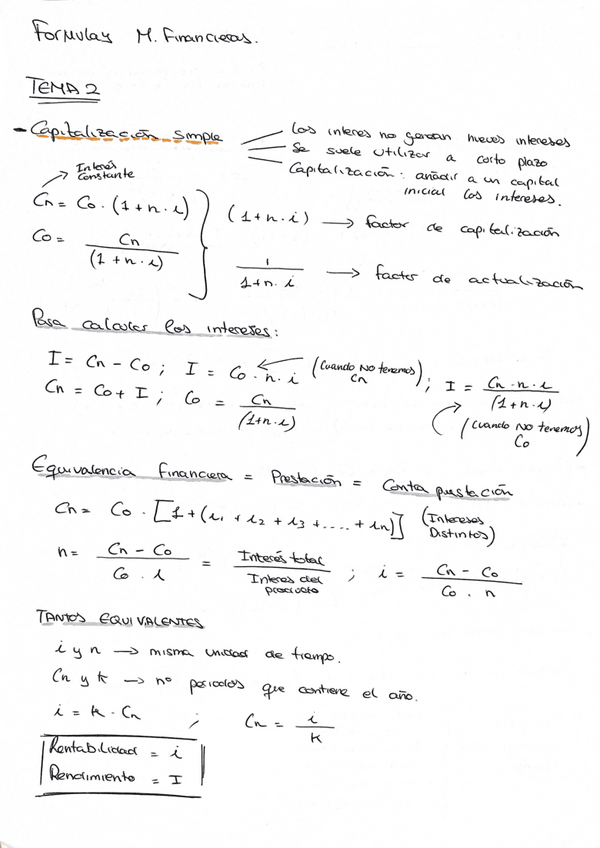 Formulas M. Financieras.
TEMA 2
- Capitalización simple
Los interes no generan nuevos intereses
Se suele utilizar a corto plazo
Capitalización: añadir a un capital
inicial los intereses.
Interés
Constante
Cn = Co · (1 + n · i)
(1 + n · i) → factor de capitalización
Co = Cn / (1 + n · i)
1 / 1 + n · i → factor de actualización
Para calcular los intereses:
I = Cn - Co ; I = Co · n · i (Cuando NO tenemos Cn) ; I = Cn · n · i / (1 + n · i)
Cn = Co + I ; Co = Cn / (1 + n · i) (Cuando NO tenemos Co)
Equivalencia financiera = Prestación = Contra prestación
Cn = Co · [1 + (i1 + i2 + i3 + .... + in)] (Intereses Distintos)
n = Cn - Co / Co · i = Interés total / Interes del producto ; i = Cn - Co / Co · n
TANTOS EQUIVALENTES
i y n → misma unidad de tiempo.
Cn y k → nº periodos que contiene el año.
i = k · Cn ; Cn = i / K
Rentabilidad = i
Rendimiento = I